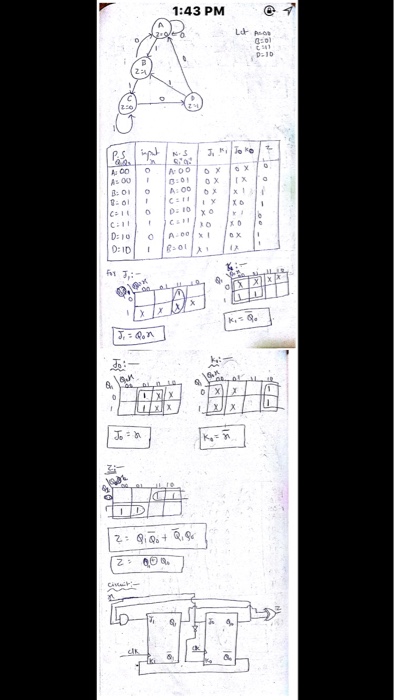 1:43 PM
Let A=00
B=01
C=11
D=10
A
Z=0
B
Z=1
C
Z=0
D
Z=1
P.S input N.S J₁ K₁ J₀ K₀ Z
Q₁Q₀ x Q₁⁺Q₀⁺
A:00 0 A:00 0X 0X 0
A:00 1 B:01 0X 1X 0
B:01 0 A:00 0X X1 1
B:01 1 C=11 1X X0 1
C=11 0 D=10 X0 X1 0
C=11 1 C=11 X0 X0 0
D:10 0 A:00 X1 0X 1
D:10 1 B=01 X1 1X 1
For J₁:-
K₁:-
J₁ = Q₀x
K₁ = Q̅₀
J₀:-
K₀:-
J₀ = x
K₀ = x̅
Z:-
Z = Q₁Q̅₀ + Q̅₁Q₀
Z = Q₁⊕Q₀
circuit:-
x
J₁ Q₁ J₀ Q₀ Z
clk clk
K₁ Q̅₁ K₀ Q̅₀